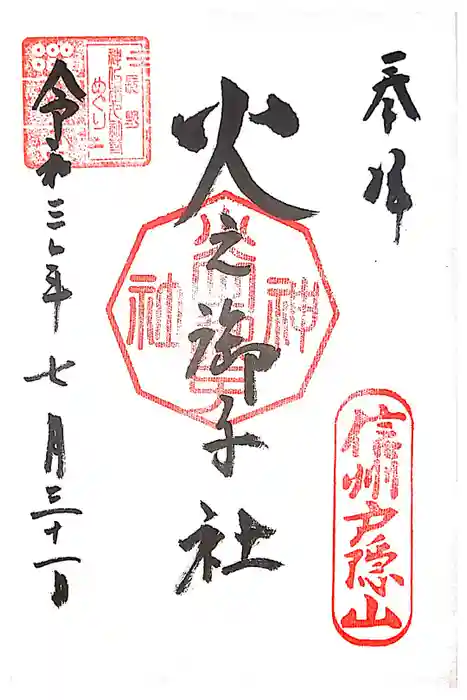 奉拝
信州戸隠山
火之御子社
神社
令和三年七月三十一日
めぐり